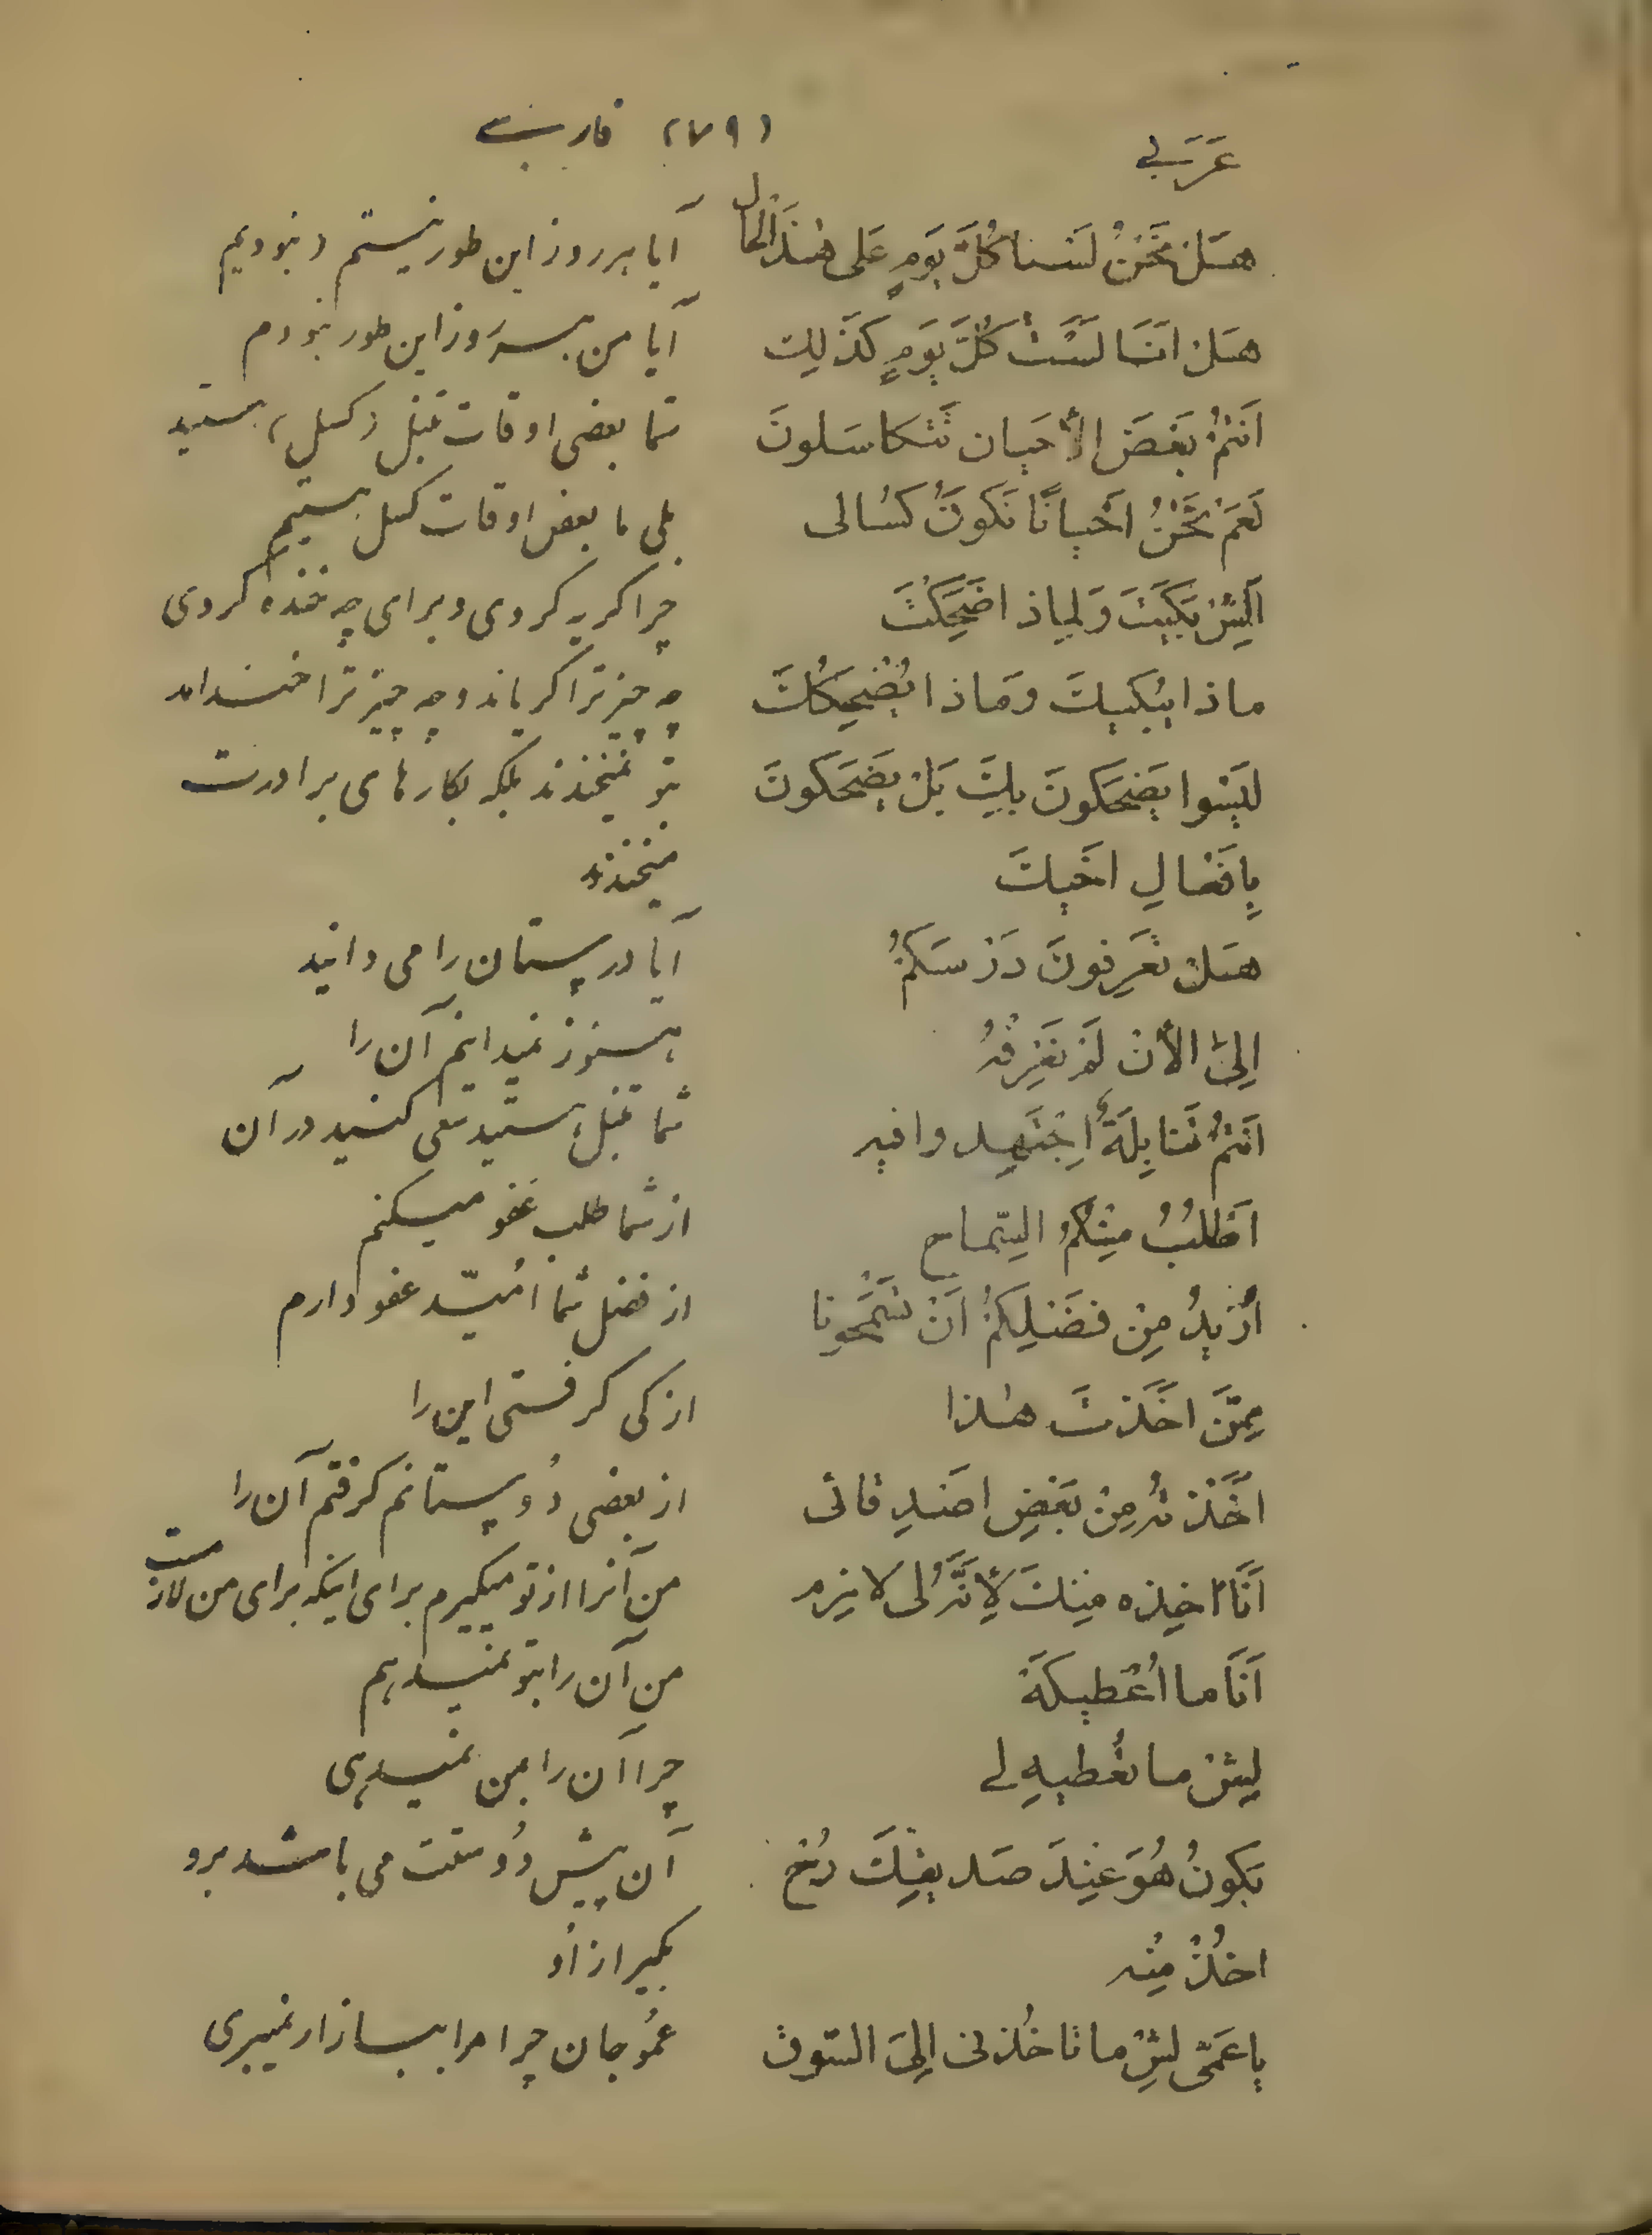 عَرَبي (٧٩) فارسي
هَلْ نَحْنُ لَسْنا كُلَّ يَومٍ عَلى هٰذَالْحال آیا هرروز این طور نیستم و نبودیم
هَلْ انَا لَسْتُ كُلَّ يَومٍ كَذلِك آیا من هر روز این طور نبودم
اَنْتُمْ بَعْضَ الأحيان تَتَكاسَلونَ شما بعضی اوقات تنبل و کسل هستید
نَعَمْ نَحْنُ احْيانًا نَكونُ كَسٰالى بلی ما بعض اوقات کسل هستیم
اَلِيشْ بَكَيْتَ وَلِماذا ضَحِكْتَ چرا کریه کردی و برای چه خنده کردی
ماذا يُبْكيكَ وَمَاذا يُضْحِكُكَ چه چیز ترا کریاند و چه چیز ترا خنداند
لَيْسُوا يَضْحَكونَ بِكَ بَلْ يَضْحَكونَ بتو نمیخندند بلکه بکارهای برادرت
بِافَعْالِ اخَيكَ میخندند
هَلْ تَعْرِفونَ دَرْسَكُمْ آیا درستان را می دانید
اِلىَ الأنْ لَمْ نَعْرِفْهُ هنوز نمیدانم آن را
اَنْتُمْ تَنابِلَةٌ اِجْتَهِدوا فيه شما تنبل هستید سعی کنید در آن
اَطْلُبُ مِنْكُمُ السِّماح از شما طلب عفو میکنم
اُرْيدُ مِنْ فَضْلِكُمْ اَنْ تَسْمَحُونا از فضل شما امّید عفو دارم
مِمَّنْ اخَذْتَ هٰذا از کی کرفتی این را
اخَذْتُهُ مِنْ بَعْضِ اصَدِقائى از بعضی دُوستانم کرفتم آن را
اَنَا اخِذه مِنْكَ لِأَنَّهُ لى لازم من آنرا از تو میکیرم برای اینکه برای من لازمست
اَنَا ما اُعْطيكَهُ من آن را بتو نمیدهم
لِيشْ ما تُعْطيهِ لے چرا آن را بمن نمیدهی
يَكونُ هُوَ عِنْدَ صَديقِكَ رُحْ آن پیش دُوستت می باشد برو
اخُذْ مِنْه بکیر از اُو
ياعَمّى لِيشْ ما تاخُذنى اِلىَ السّوق عمُوجان چرا مرا ببازار نمیبری